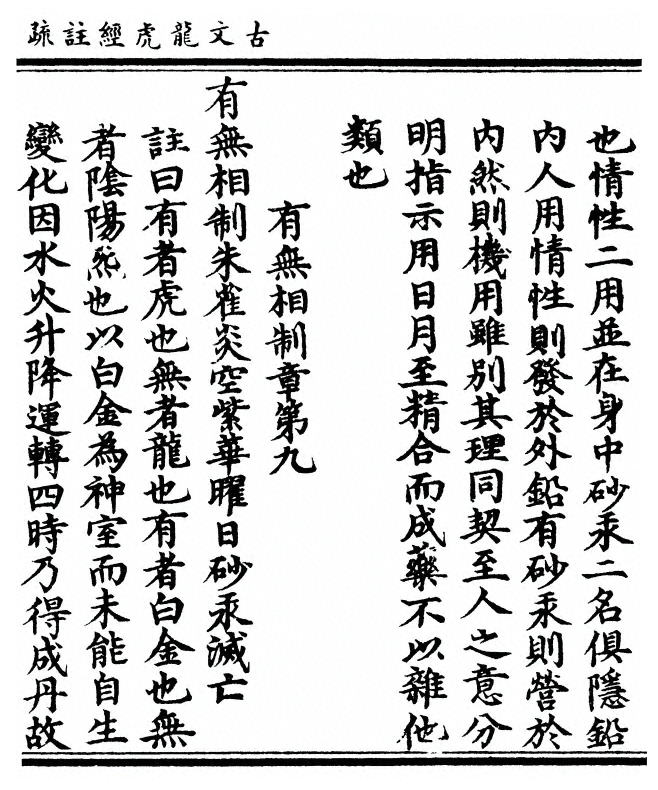 古文龍虎經註疏
也情性二用並在身中砂汞二名俱隱鉛
内人用情性則發於外鉛有砂汞則營於
内然則機用雖別其理同契至人之意分
明指示用日月至精合而成藥不以雜他
類也
有無相制章第九
有無相制朱雀炎空紫華曜日砂汞滅亡
註曰有者虎也無者龍也有者白金也無
者陰陽炁也以白金為神室而未能自生
變化因水火升降運轉四時乃得成丹故